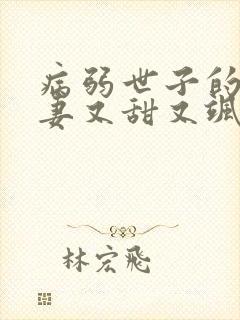 病弱世子的
妻又甜又飒
林宏飞